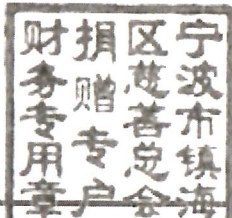 宁波市镇海
区慈善总会
捐赠专户
财务专用章